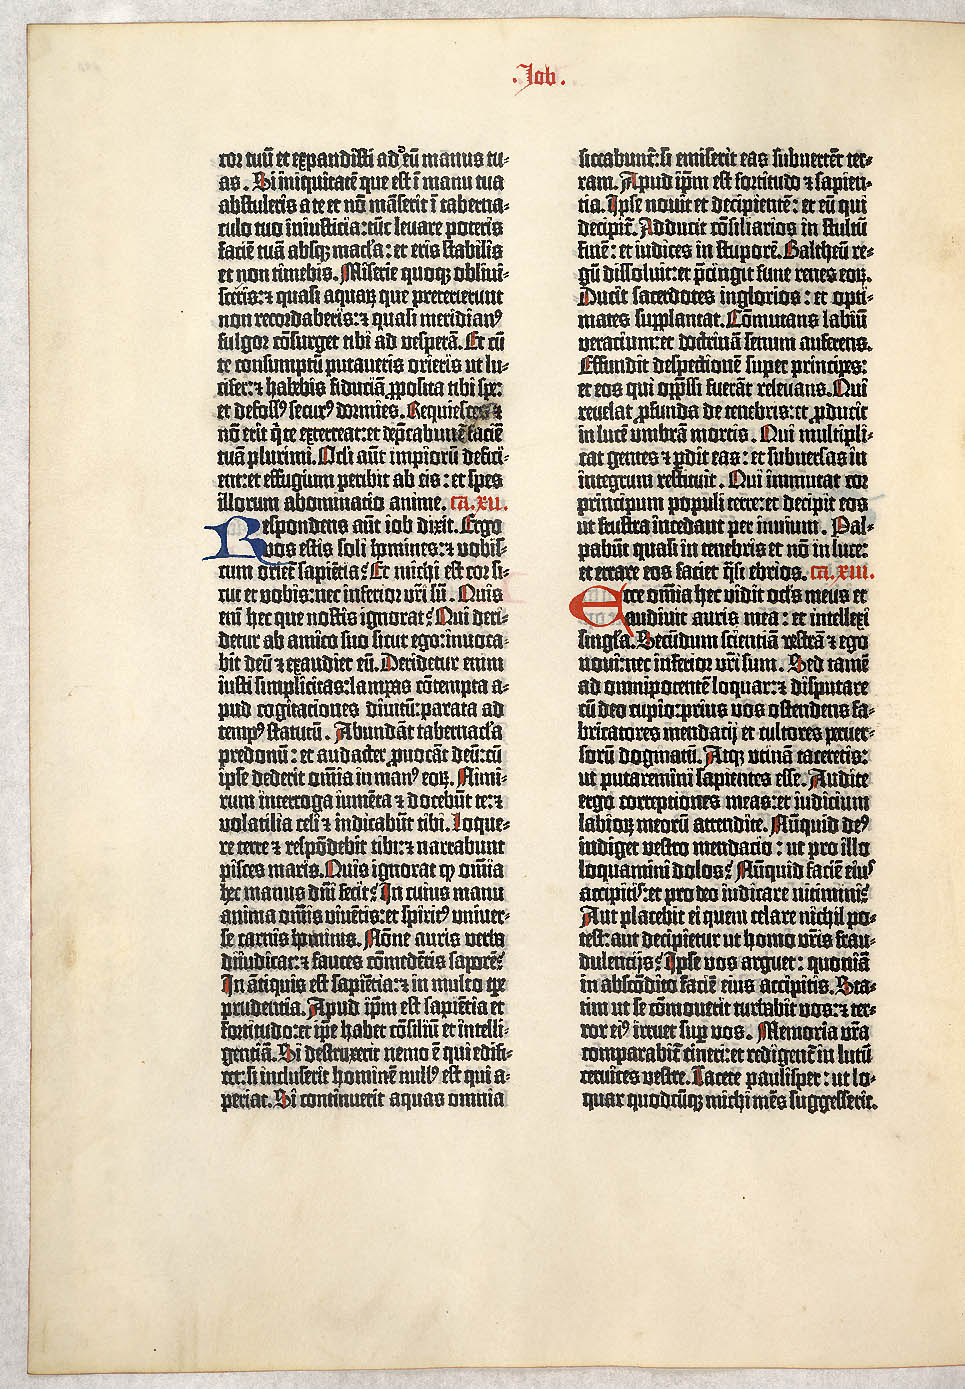 .Job.
cor tuū et expandisti ad eū manus tu-
as. Si iniquitatē que est ī manu tua
abstuleris a te et nō māserit ī taberna-
culo tuo iniusticia: tūc levare poteris
faciē tuā absq; mac̄la: et eris stabilis
et non timebis. Miserie quoq; obliui-
sceris: ⁊ quasi aquaꝝ que preterierunt
non recordaberis: ⁊ quasi meridianꝰ
fulgor cōsurget tibi ad vesperā. Et cū
te consumptū putaueris orieris ut lu-
cifer: ⁊ habebis fiduciā ꝓposita tibi spe:
et defossꝰ securꝰ dormies. Requiesces ⁊
nō erit q̄ te exterreat: et dep̄cabunt̄ faciē
tuā plurimi. Ocli aūt impiorū defici-
ent: et effugium peribit ab eis: et spes
illorum abominatio anime. ca. xii.
Respondens aūt iob dixit. Ergo
vos estis soli homines: ⁊ vobis-
cum oriet̄ sapiētia? Et michi est cor si-
cut et vobis: nec inferior vr̄i sū. Quis
eni hec que nostis ignorat? Qui deri-
detur ab amico suo sicut ego: inuoca-
bit deū ⁊ exaudiet eū. Deridetur enim
iusti simplicitas: lampas cōtempta a-
pud cogitationes diuitū: parata ad
tempꝰ statutū. Abundāt tabernac̄la
predonū: et audacter ꝓuocāt deū: cū
ipse dederit om̄ia in manꝰ eoꝝ. Nimi-
rum interroga iumēta ⁊ docebūt te: ⁊
volatilia celi ⁊ indicabūt tibi. Loque-
re terre ⁊ respōdebit tibi: ⁊ narrabunt
pisces maris. Quis ignorat ꝙ om̄ia
hec manus dn̄i fecit? In cuius manu
anima om̄is viuētis: et spiritꝰ vniuer-
se carnis hominis. Nōne auris verba
diiudicat: ⁊ fauces cōmedētis saporē?
In ātiquis est sapiētia: ⁊ in multo tp̄e
prudentia. Apud ip̄m est sapiētia et
fortitudo: et ip̄e habet cōsiliū et intelli-
gentiā. Si destruxerit nemo ē qui edifi-
cet: si incluserit hominē nullꝰ est qui a-
periat. Si continuerit aquas omnia
siccabunt̄: si emiserit eas subuertēt ter-
ram. Apud ip̄m est fortitudo ⁊ sapien-
tia. Ipse nouit et decipientē: et eū qui
decipit̄. Adducit cōsiliarios in stultū
finē: et iudices in stuporē. Baltheū re-
gū dissoluit: et p̄cingit fune renes eoꝝ.
Ducit sacerdotes inglorios: et opti-
mates supplantat. Cōmutans labiū
veracium: et doctrinā senum auferens.
Effundit despectionē super principes:
et eos qui opp̄ssi fuerāt releuans. Qui
reuelat ꝓfunda de tenebris: et ꝓducit
in lucē umbrā mortis. Qui multipli-
cat gentes ⁊ ꝑdit eas: et subuersas in
integrum restituit. Qui immutat cor
principum populi terre: et decipit eos
ut frustra incedant per inuium. Pal-
pabūt quasi in tenebris et nō in luce:
et errare eos faciet q̄si ebrios. ca. xiii.
Ecce om̄ia hec vidit ocl̄s meus et
audiuit auris mea: et intellexi
singl̄a. Secūdum scientiā vestrā ⁊ ego
noui: nec inferior vr̄i sum. Sed tamē
ad omnipotentē loquar: ⁊ disputare
cū deo cupio: prius vos ostendens fa-
bricatores mendacij et cultores peruer-
sorū dogmatū. Atq; utinā taceretis:
ut putaremini sapientes esse. Audite
ergo correptiones meas: et iudicium
labioꝝ meorū attendite. Nūquid deꝰ
indiget vestro mendacio: ut pro illo
loquamini dolos? Nūquid faciē eiuꝰ
accipitꝭ: et pro deo iudicare nitimini?
Aut placebit ei quem celare nichil po-
test: aut decipietur ut homo vr̄is frau-
dulentijs? Ipse vos arguet: quoniā
in abscōdito faciē eius accipitis. Sta-
tim ut se cōmouerit turbabit vos: ⁊ ter-
ror eiꝰ irruet suꝑ vos. Memoria vr̄a
comparabit̄ cineri: et redigent̄ in lutū
ceruices vestre. Tacete paulisper: ut lo-
quar quodcūq; michi mēs suggesserit.